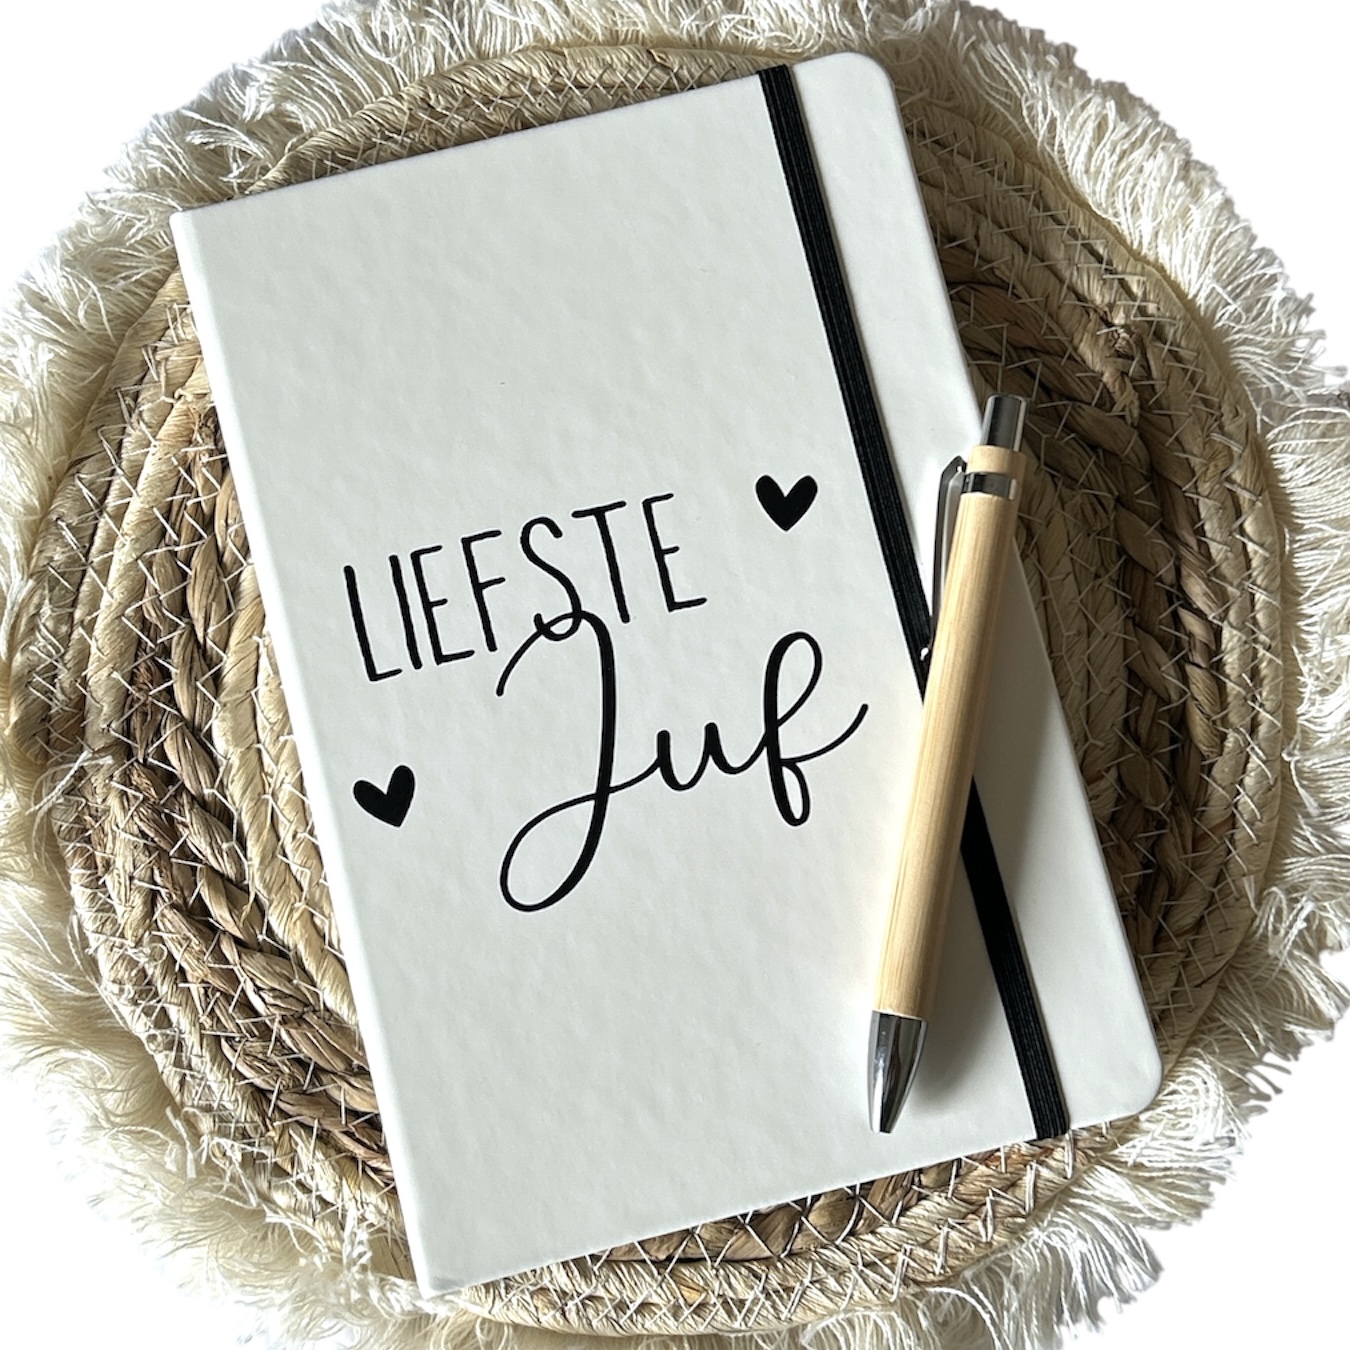 LIEFSTE
Juf